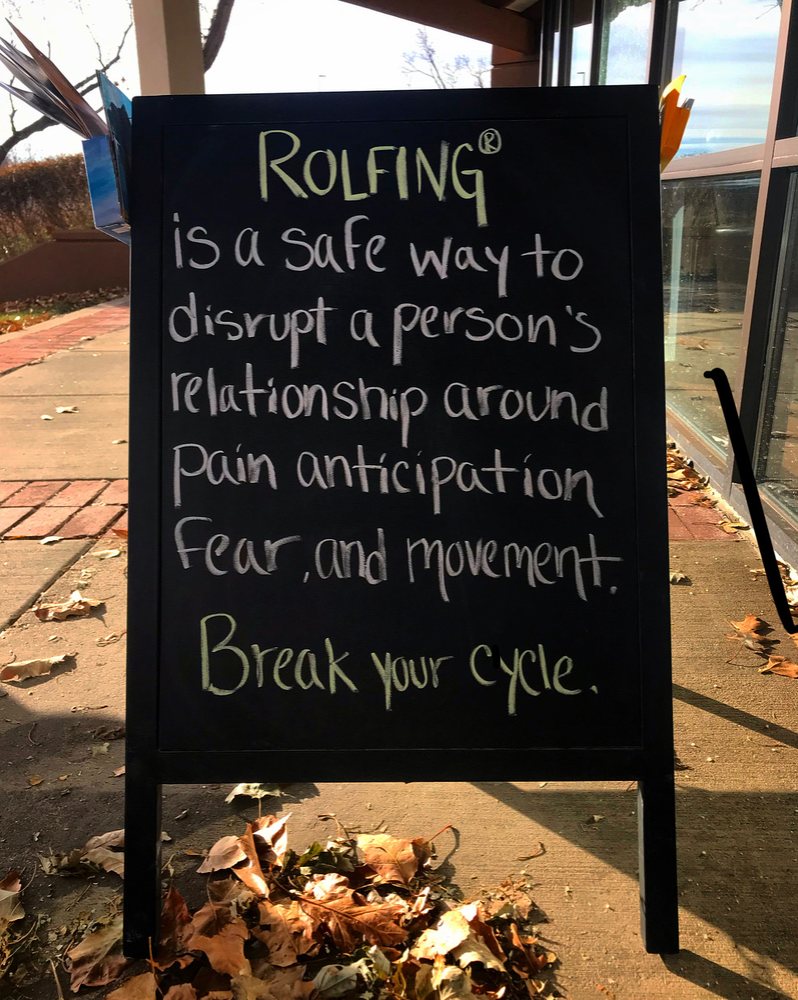 ROLFING®
is a safe way to
disrupt a person's
relationship around
pain anticipation
fear, and movement.
Break your cycle.